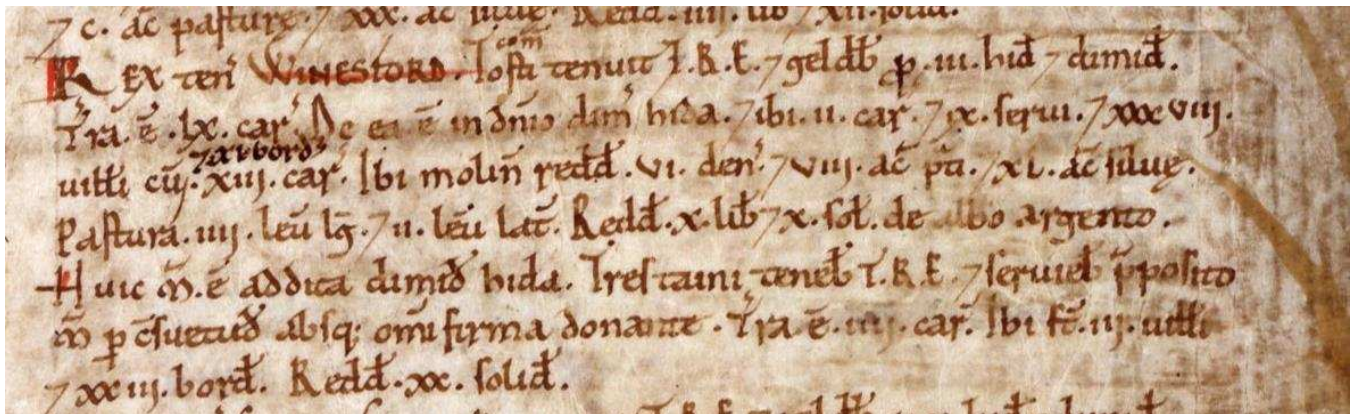 ⁊ c. ac̃ pasturę. ⁊ xxx. ac̃ siluę. Redd. iiii. lib ⁊ xii. solid.
REX ten̄ WINESFORD. Tosti com̃ tenuit T.R.E. ⁊ geldb̄ ꝓ .iii. hid̄ ⁊ dimid̄.
Tr̃a. ē .lx. car̄. De ea ē in dn̄io dim̄ hida. ⁊ ibi .ii. car̄. ⁊ ix. serui. ⁊ xxxviii.
uilłi ⁊ xi bord̄ cū .xiii. car̄. Ibi molin̄ redd̄ .vi. den̄. ⁊ viii. ac̃ p̃ti. ⁊ xl. ac̃ siluę.
Pastura .iiii. leū lḡ. ⁊ ii. leū lat̄. Redd̄ .x. lib̄ ⁊ x. sol̄. de albo argento.
Huic m̃. ē addita dimid̄ hida. Tres taini teneb̄ T.R.E. ⁊ seruieb̄ p̃posito
m̃ ꝑ c̄suetud̄ absq; om̄i firma donante. Tr̃a ē .iiii. car̄. Ibi s̄t .iii. uilłi
⁊ xxiii. bord̄. Redd̄ .xx. solid̄.